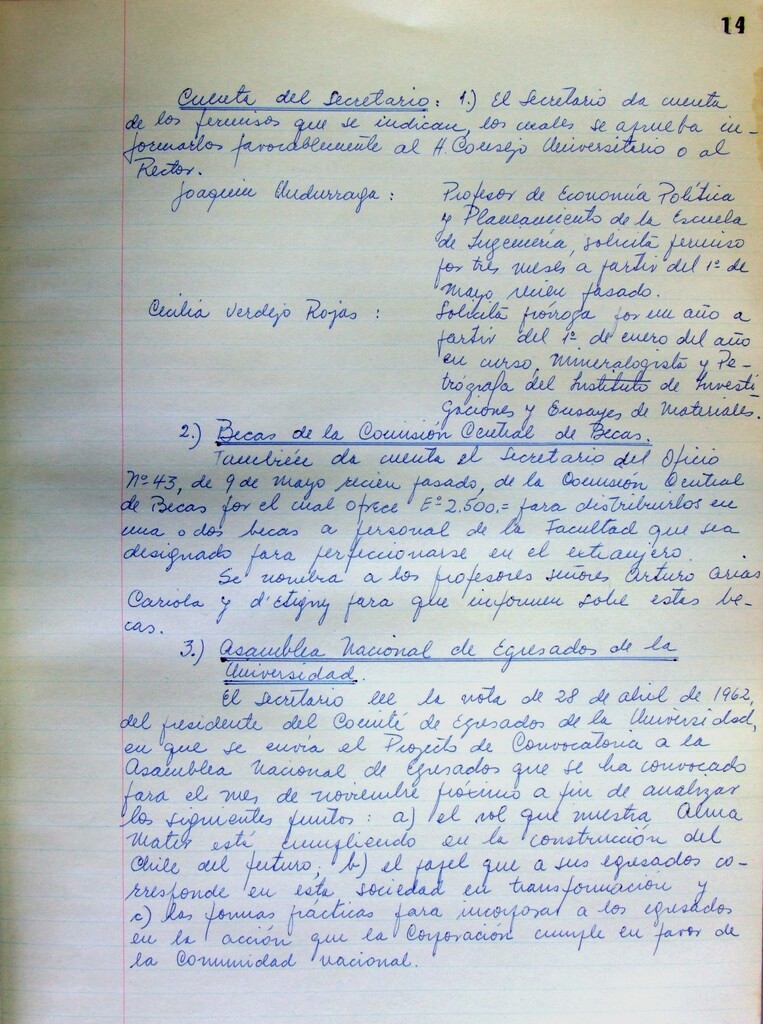 14
Cuenta del Secretario: 1.) El Secretario da cuenta
de los permisos que se indican, los cuales se aprueba in-
formarlos favorablemente al H. Consejo Universitario o al
Rector.
Joaquín Undurraga : Profesor de Economía Política
y Planeamiento de la Escuela
de Ingeniería, solicita permiso
por tres meses a partir del 1º de
mayo recien pasado.
Cecilia Verdejo Rojas : Solicita prórroga por un año a
partir del 1º de enero del año
en curso, Mineralogista y Pe-
trógrafa del Instituto de Investi
gaciones y Ensayes de Materiales.
2.) Becas de la Comisión Central de Becas.
También da cuenta el Secretario del Oficio
Nº 43, de 9 de mayo recien pasado, de la Comisión Central
de Becas por el cual ofrece Eº 2.500.= para distribuirlos en
una o dos becas a personal de la Facultad que sea
designado para perfeccionarse en el extranjero.
Se nombra a los profesores señores Arturo Arias
Cariola y d'Etigny para que informen sobre estas be-
cas.
3.) Asamblea Nacional de Egresados de la
Universidad.
El Secretario lee la nota de 28 de abril de 1962,
del presidente del Comité de Egresados de la Universidad,
en que se envía el Projecto de Convocatoria a la
Asamblea Nacional de Egresados que se ha convocado
para el mes de noviembre próximo a fin de analizar
los siguientes puntos: a) el rol que nuestra Alma
Mater está cumpliendo en la construcción del
Chile del futuro; b) el papel que a sus egresados co-
rresponde en esta sociedad en transformación y
c) las formas prácticas para incorporar a los egresados
en la acción que la Corporación cumple en favor de
la Comunidad nacional.